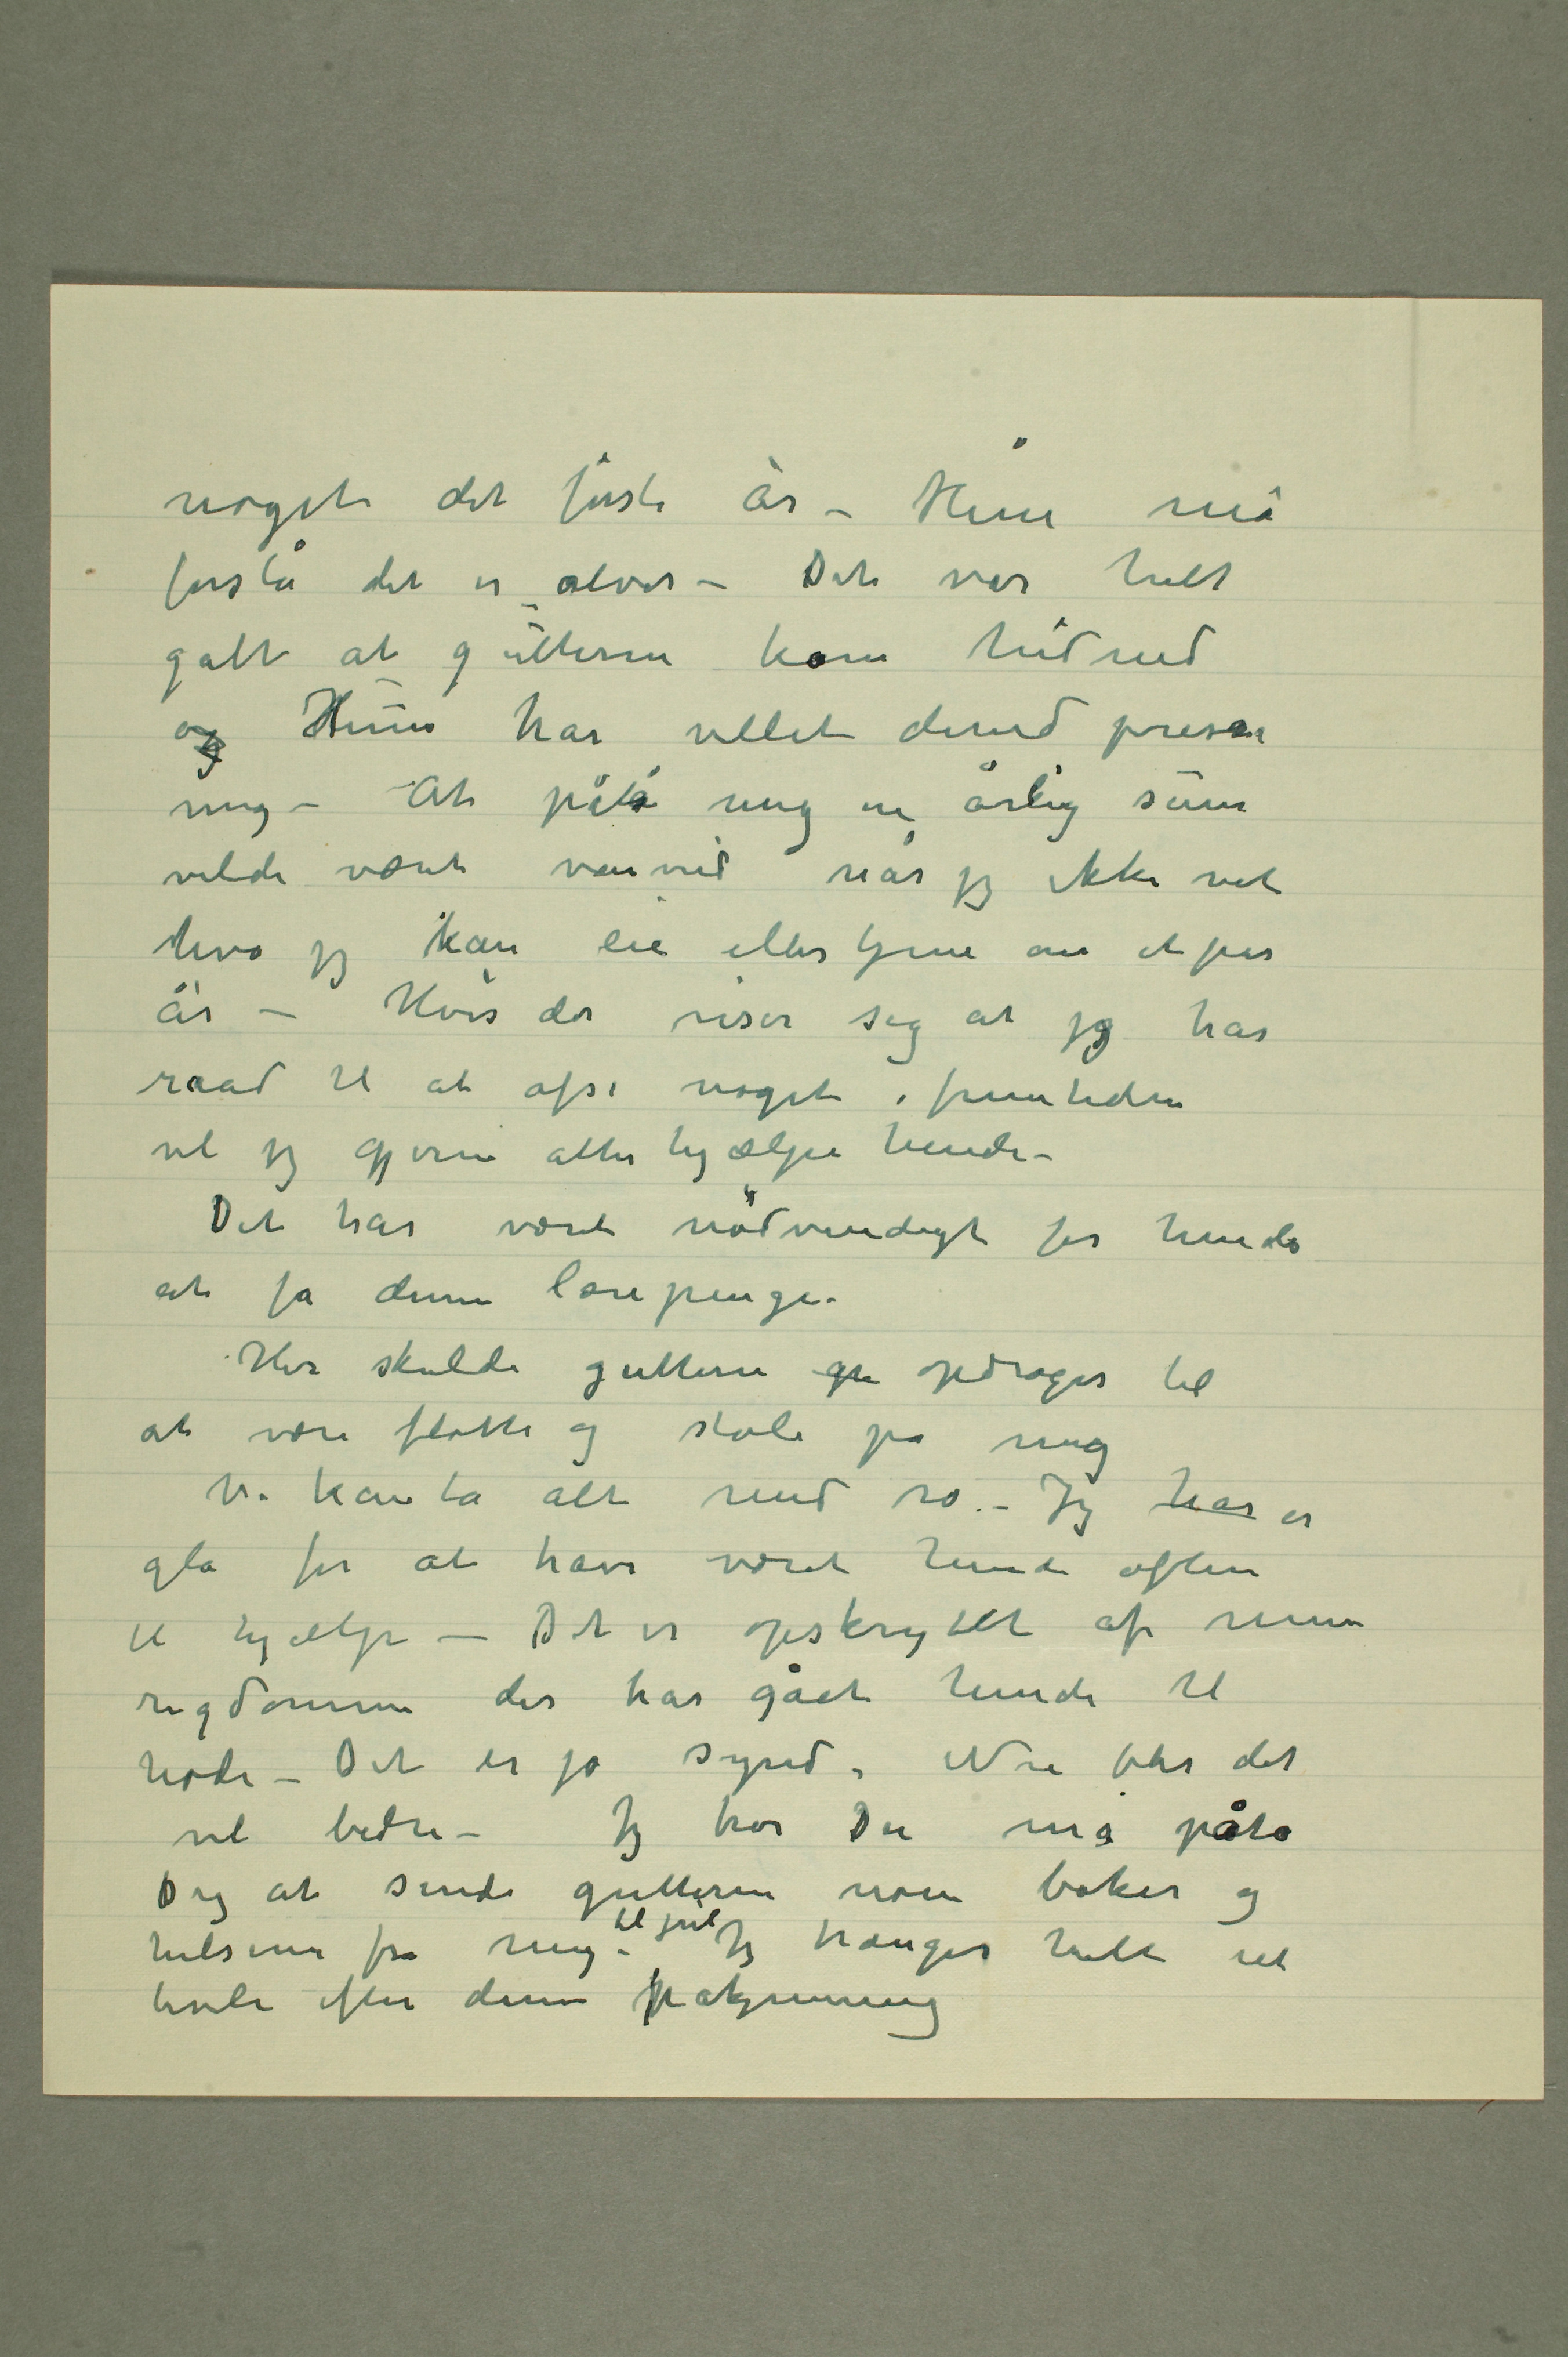 noget det første år – Hun må
forstå det er alvor – Det var helt
galt at gutterne kom hid ned
og Hun har villet derved presse
mig – At påta mig en årlig sum
vilde været vanvid når jeg ikke vet
hva jeg kan eie eller tjene om et par
år – Hvis der viser sig at jeg har
raad til at afse noget i fremtiden
vil jeg gjerne atter hjælpe hende –
Det har været nødvendigt for hende
at få denne lærepenge.
Her skulde gutterne opdrages til
at være flotte og stole på mig
Vi kan ta alt med ro. – Jeg har er
gla for at have været hende ofte
til hjælp – Det er opskrytet af min
rigdomme der har gået hende til
hode – Det er jo synd. Nu blir det
vel bedre – Jeg tror Du må påta
Dig at sende gutterne noen bøker og
hilsener fra mig – til jul Jeg trænger helt ut
hvile efter denne påkjenning